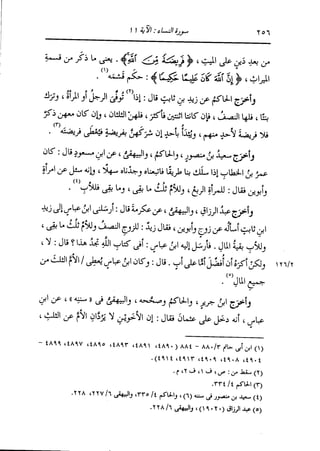 ٢٥٦ سورة النساء : الآية ١١
من بعد دين على الميت ، ﴿فريضة من الله﴾ . يعنى ما ذكر من قسمة
الميراث ، ﴿إن الله كان عليما حكيما﴾ : حكم قسمه(١) .
وأخرج الحاكم عن زيد بن ثابت قال : إذا(٢) توفى الرجل أو المرأة ، وترك
بنتا ، فلها النصف ، فإن كانتا اثنتين فأكثر ، فلهن الثلثان ، وإن كان معهن ذكر
فلا فريضة لأحد منهم ، ويبدأ بأحد إن شركهن بفريضة فيعطى فريضته(٣) .
وأخرج سعيد بن منصور ، والحاكم ، والبيهقى ، عن ابن مسعود قال : كان
عمر بن الخطاب إذا سلك بنا طريقا فاتبعناه وجدناه سهلا ، وإنه سئل عن امرأة
وأبوين فقال : للمرأة الربع ، وللأم ثلث ما بقى ، وما بقى فللأب(٤) .
وأخرج عبد الرزاق ، والبيهقى ، عن عكرمة قال : أرسلنى ابن عباس إلى زيد
ابن ثابت أسأله عن زوج وأبوين ، فقال زيد : للزوج النصف وللأم ثلث ما بقى ،
وللأب بقية المال . فأرسل إليه ابن عباس : أفى كتاب الله تجد هذا ؟ قال : لا ،
١٢٦/٢ ولكن أكره أن أفضل أمًّا على أب . قال : وكان ابن عباس يعطى / الأم الثلث من
جميع المال(٥) .
وأخرج ابن جرير ، والحاكم وصححه ، والبيهقى فى « سننه » ، عن ابن
عباس ، أنه دخل على عثمان فقال : إن الأخوين لا يردان الأم عن الثلث ،
(١) ابن أبى حاتم ٨٨٠/٣ - ٨٨٤ (٤٨٩٠، ٤٨٩١، ٤٨٩٣، ٤٨٩٥، ٤٨٩٧، ٤٨٩٩ -
٤٩٠٤، ٤٩٠٨، ٤٩٠٩، ٤٩١٣، ٤٩١٤) .
(٢) سقط من : ص ، ف ١، ف ٢، م .
(٣) الحاكم ٣٣٤/٤ .
(٤) سعيد بن منصور فى سننه (٦) ، والحاكم ٣٣٥/٤، والبيهقى ٢٢٧/٦، ٢٢٨ .
(٥) عبد الرزاق (١٩٠٢٠) ، والبيهقى ٢٢٨/٦ .